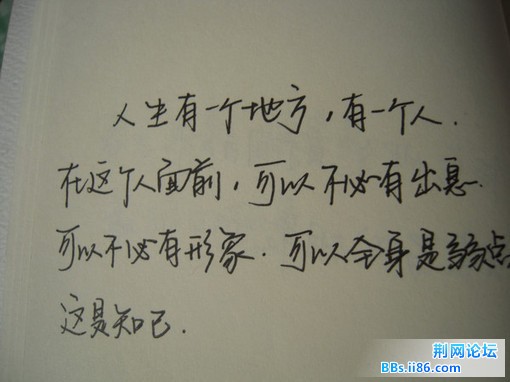 人生有一个地方，有一个人.
在这个人面前，可以不必有出息.
可以不必有形象.可以全身是弱点
这是知己.
荆网论坛
BBs.ii86.com